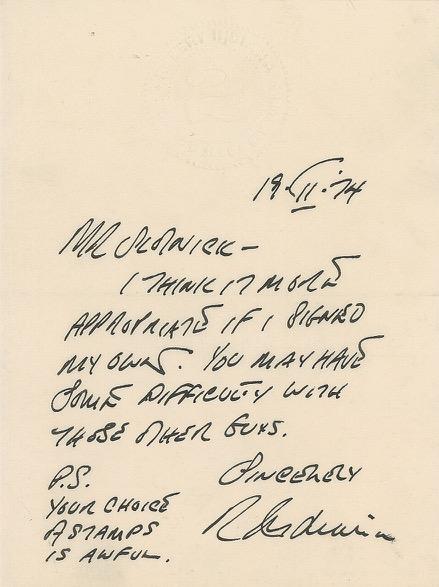 19·II·74
MR SKOLNICK —
I THINK IT MORE
APPROPRIATE IF I SIGNED
MY OWN. YOU MAY HAVE
SOME DIFFICULTY WITH
THOSE OTHER GUYS.
SINCERELY
P.S.
YOUR CHOICE
A STAMPS
IS AWFUL.